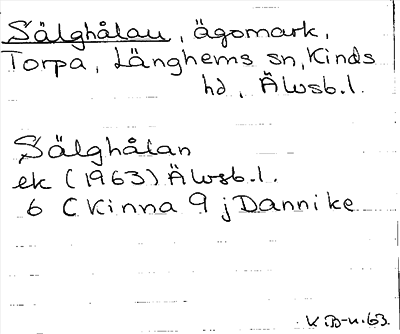 Sälghålan, ägomark,
Torpa, Länghems sn, Kinds
hd, Älvsb.l.
Sälghålan
ek (1963) Älvsb.l.
6 C Kinna 9 j Dannike